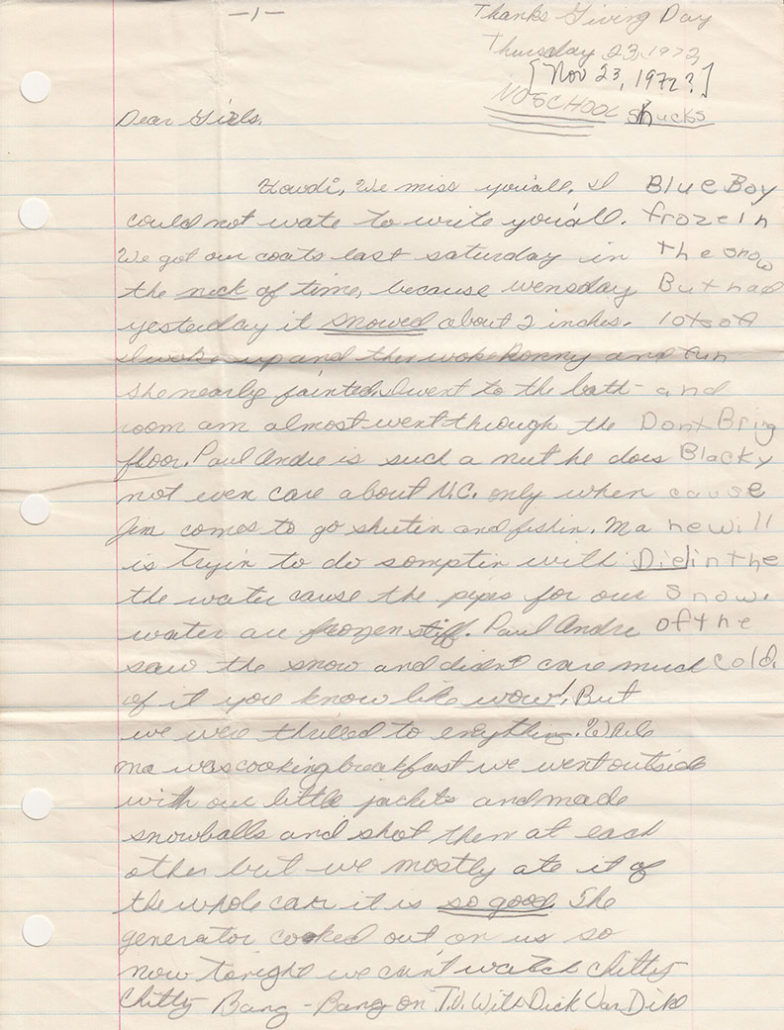 -1-
Thanks Giving Day
Thursday 23, 1972
[Nov 23, 1972?]
NO SCHOOL shucks
Dear Girls,
Howdi, We miss you'all. I
could not wate to write you'all.
We got our coats last saturday in
the nick of time, because wensday
yesterday it snowed about 2 inches.
I woke up and then woke Ronny and
she nearly fainted. I went to the bath-
room am almost went through the
floor. Paul Andre is such a nut he does
not even care about N.C. only when
Jim comes to go shutin and fishin. Ma
is tryin to do somptin with
the water cause the pipes for our
water are frozen stiff. Paul Andre
saw the snow and didnt care much
of it you know like wow! But
we were thrilled to enything. While
ma was cooking breakfast we went outside
with our little jackets and made
snowballs and shot them at each
other but we mostly ate it of
the whole car it is so good. The
generator cooked out on us so
now tonight we can't watch Chitty
Chitty Bang-Bang on T.V. With Dick Van Dike
Blue Boy
froze In
the snow
But had
lots of
fun
and
Dont Brig
Blacky
cause
he will
Die in the
snow.
of the
cold.